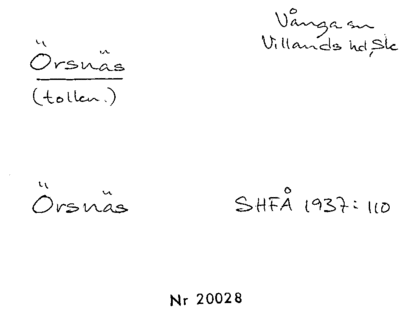 Örsnäs
(tolken.)
Vånga sn
Villands hd, Sk
Örsnäs
SHFÅ 1937: 110
Nr 20028